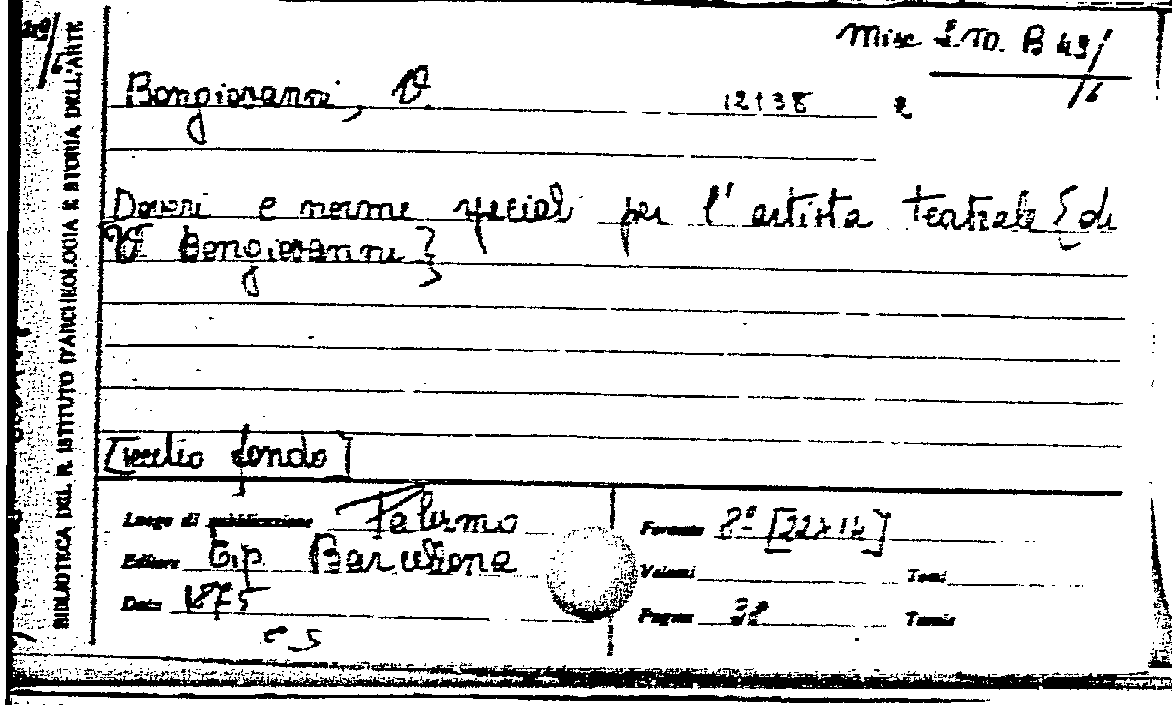 Misc I.TO. B 43/
/6
Bongiovanni, V. 12138
Doveri e norme speciali per l'artista teatrale {di
V. Bongiovanni}
[vecchio fondo]
Luogo di pubblicazione Palermo
Formato 8º [22x14]
Editore Tip Barcellona
Volumi
Tomi
Data 1875
Pagine 38
Tavole
e S
BIBLIOTECA DEL R. ISTITUTO D'ARCHEOLOGIA E STORIA DELL'ARTE